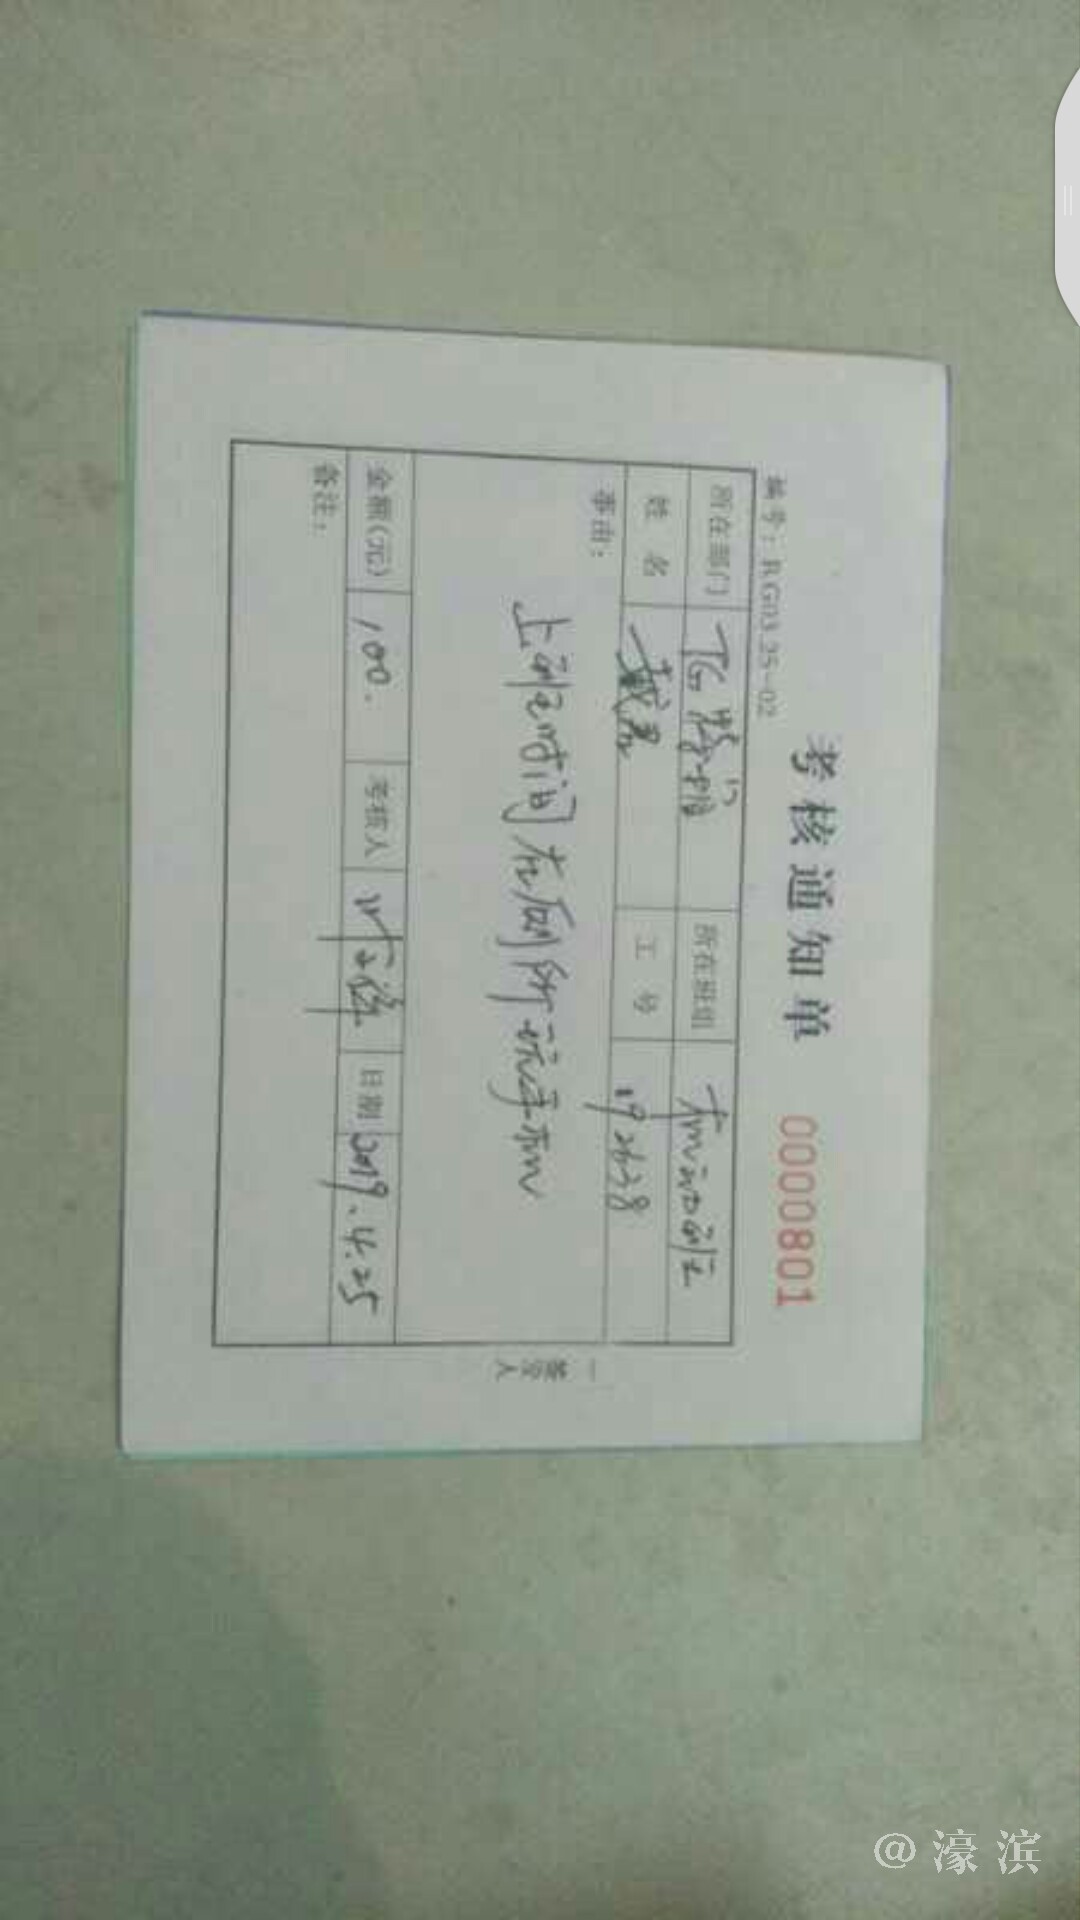 考核通知单 0000801
编号：RG03.25-02
所在部门 所在班组
姓名 工号 192638
事由：
上班时间在厕所玩手机
金额(元) 100. 考核人 日期 2019.4.25
备注：
一签字人
@濠滨